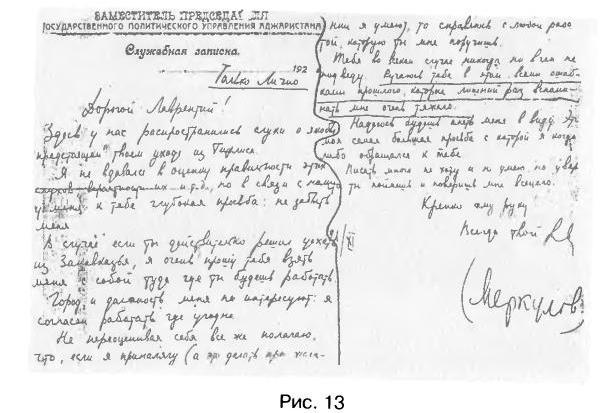 ЗАМЕСТИТЕЛЬ ПРЕДСЕДАТЕЛЯ
ГОСУДАРСТВЕННОГО ПОЛИТИЧЕСКОГО УПРАВЛЕНИЯ АДЖАРИСТАНА
Служебная записка.
192
Только Лично
Дорогой Лаврентий!
Здесь у нас распространились слухи о якобы
предстоящем твоем уходе из Тифлиса.
Я не вдаюсь в оценку правильности этих
слухов вероятностных и т.д., но в связи с ними
у меня к тебе глубокая просьба: не забудь
меня
В случае если ты действительно решил уехать
из Закавказья, я очень прошу тебя взять
меня с собой туда где ты будешь работать
Город и должность меня не интересуют: я
согласен работать где угодно
Не переоценивая себя все же полагаю,
что, если я приналягу (а это делать при жела-
нии я умею), то справлюсь с любой рабо
той, которую ты мне поручишь.
Тебя во всяком случае никогда ни в чем не
подведу. Ручаюсь тебе в этом всеми ошиб-
ками прошлого, которые лишний раз вспоми-
нать мне очень тяжело.
Надеюсь будешь иметь меня в виду. Это
моя самая большая просьба с которой я когда
либо обращался к тебе
Писать много не хочу и не умею, но увер
ты поймешь и поверишь мне всецело.
Крепко жму руку
Всегда твой
(Меркулов)
Рис. 13